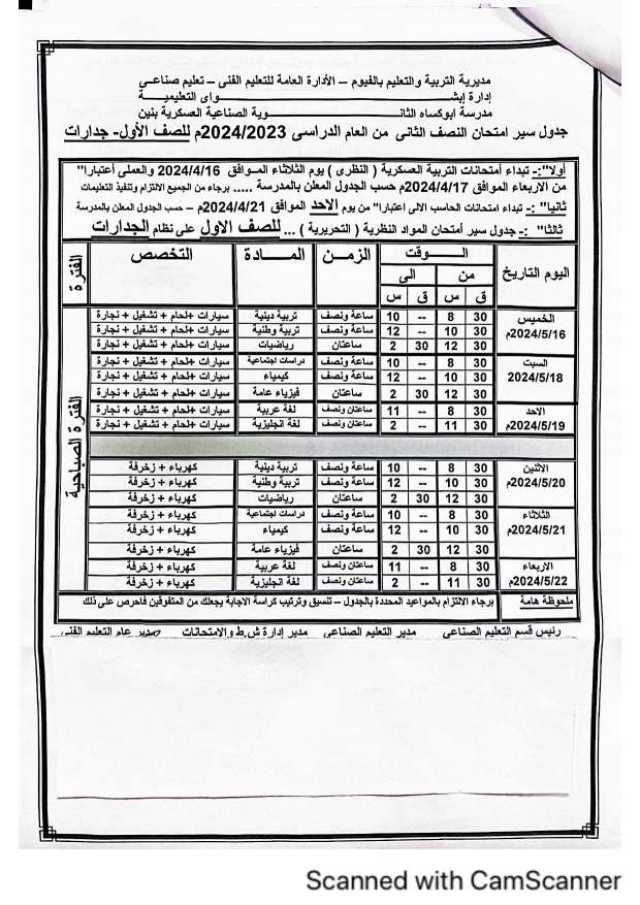 مديرية التربية والتعليم بالفيوم – الأدارة العامة للتعليم الفنى – تعليم صناعى
إدارة إبشـــــواى التعليمية
مدرسة ابوكساه الثانـــــوية الصناعية العسكرية بنين
جدول سير امتحان النصف الثانى من العام الدراسى 2024/2023م للصف الأول- جدارات
أولا":- تبداء أمتحانات التربية العسكرية ( النظرى ) يوم الثلاثاء المـوافق 2024/4/16 والعملى أعتبارا"
من الاربعاء الموافق 2024/4/17م حسب الجدول المعلن بالمدرسة ..... برجاء من الجميع الالتزام وتنفيذ التعليمات
ثانيا" :- تبداء امتحانات الحاسب الالى اعتبارا" من يوم الاحد الموافق 2024/4/21م – حسب الجدول المعلن بالمدرسة
ثالثا" :- جدول سير أمتحان المواد النظرية ( التحريرية ) ... للصف الاول على نظام الجدارات
اليوم التاريخ الـــوقت الزمـن المـــادة التخصص الفترة
من الى
ق س ق س
الفترة الصباحية
الخميس 2024/5/16م
30 8 -- 10 ساعة ونصف تربية دينية سيارات +لحام + تشغيل + نجارة
30 10 -- 12 ساعة ونصف تربية وطنية سيارات +لحام + تشغيل + نجارة
30 12 30 2 ساعتان رياضيات سيارات +لحام + تشغيل + نجارة
السبت 2024/5/18
30 8 -- 10 ساعة ونصف دراسات اجتماعية سيارات +لحام + تشغيل + نجارة
30 10 -- 12 ساعة ونصف كيمياء سيارات +لحام + تشغيل + نجارة
30 12 30 2 ساعتان فيزياء عامة سيارات +لحام + تشغيل + نجارة
الاحد 2024/5/19م
30 8 -- 11 ساعتان ونصف لغة عربية سيارات +لحام + تشغيل + نجارة
30 11 -- 2 ساعتان ونصف لغة انجليزية سيارات +لحام + تشغيل + نجارة
الاثنين 2024/5/20م
30 8 -- 10 ساعة ونصف تربية دينية كهرباء + زخرفة
30 10 -- 12 ساعة ونصف تربية وطنية كهرباء + زخرفة
30 12 30 2 ساعتان رياضيات كهرباء + زخرفة
الثلاثاء 2024/5/21م
30 8 -- 10 ساعة ونصف دراسات اجتماعية كهرباء + زخرفة
30 10 -- 12 ساعة ونصف كيمياء كهرباء + زخرفة
30 12 30 2 ساعتان فيزياء عامة كهرباء + زخرفة
الاربعاء 2024/5/22م
30 8 -- 11 ساعتان ونصف لغة عربية كهرباء + زخرفة
30 11 -- 2 ساعتان ونصف لغة انجليزية كهرباء + زخرفة
ملحوظة هامة برجاء الالتزام بالمواعيد المحددة بالجدول – تنسيق وترتيب كراسة الاجابة يجعلك من المتفوقين فاحرص على ذلك
رئيس قسم التعليم الصناعى مدير التعليم الصناعى مدير إدارة ش.ط والامتحانات مدير عام التعليم الفنى
Scanned with CamScanner